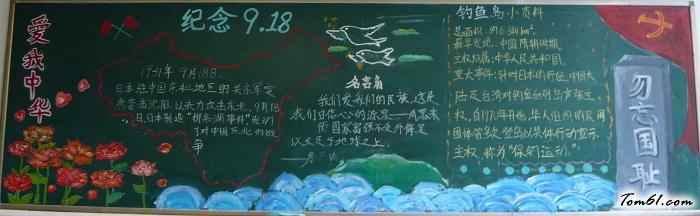 爱我中华
纪念9.18
1931年9月18日,
日本驻中国东北地区的关东军突
然袭击沈阳,以武力侵占东北,9月18
日,日本制造“柳条湖事件”发动
了对中国东北的战
争
名言角
我们爱我们的民族,这是
我们自信心的源泉。—周恩来
使国家富强不受外侮足
以立足于地球之上。
钓鱼岛小资料
总面积:约6.344km²。
最早发现:中国隋朝时期。
主权归属:中华人民共和国。
重大事件:针对日本的行径,中国大
陆及台湾对钓鱼台列岛声张主
权,自1970年开始,华人组织的民间
团体曾多次登岛以具体行动宣示
主权,称为“保钓运动”。
勿忘国耻
Tom61.com